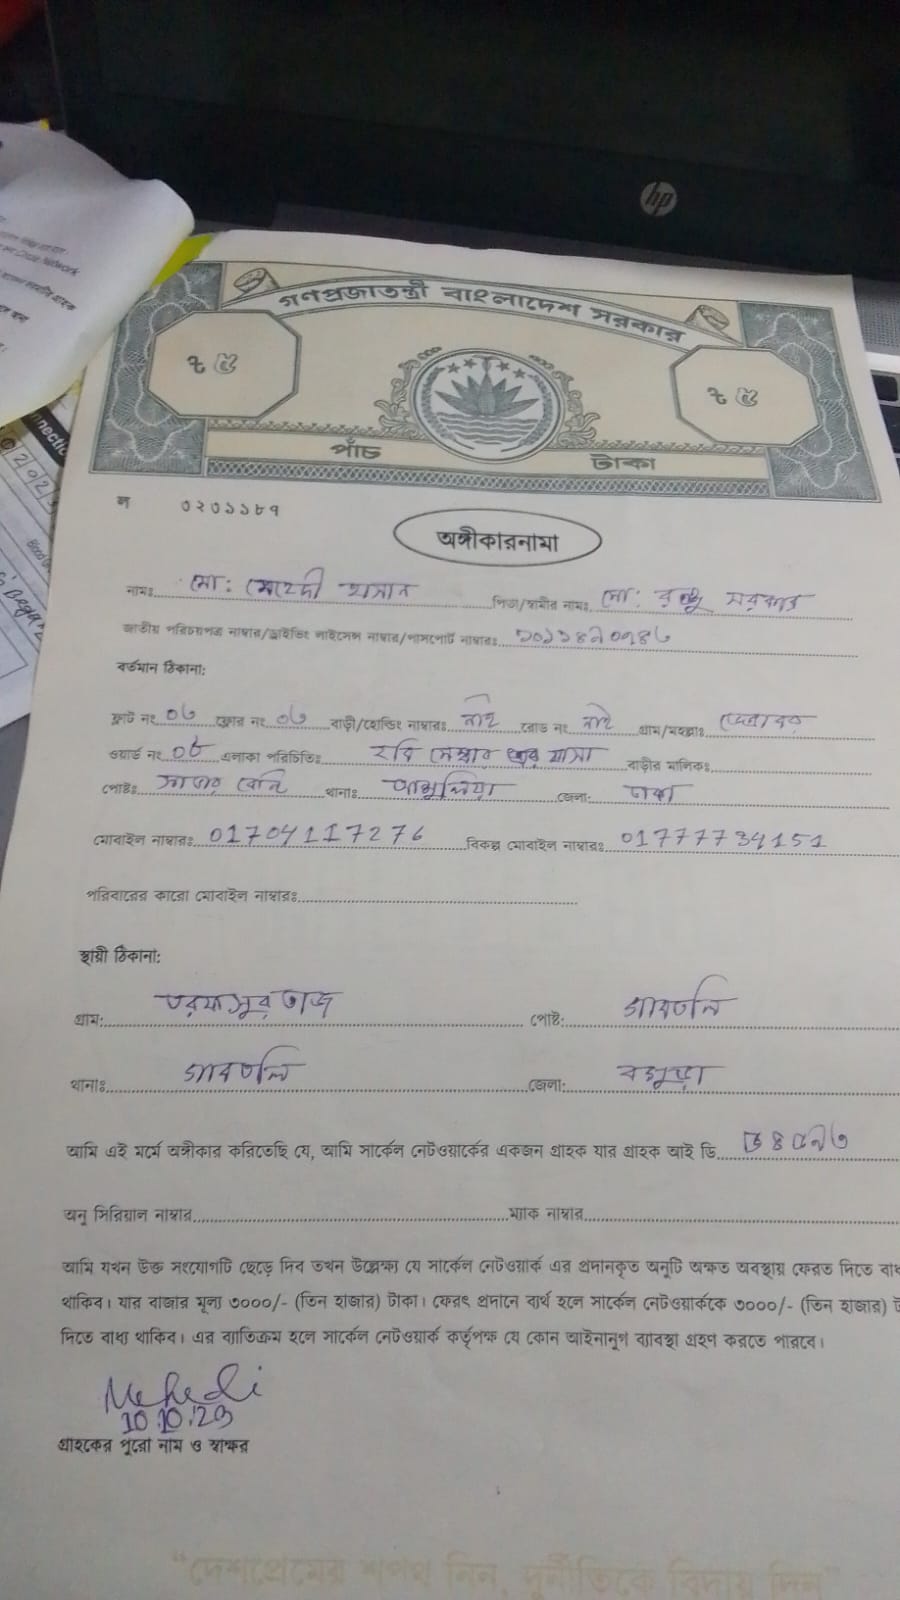 গণপ্রজাতন্ত্রী বাংলাদেশ সরকার
৳ ৫
৳ ৫
পাঁচ টাকা
ল ০২০১১৮৭
অঙ্গীকারনামা
নামঃ মো: মেহেদী হাসান পিতা/স্বামীর নামঃ মো: সরকার
জাতীয় পরিচয়পত্র নাম্বার/ড্রাইভিং লাইসেন্স নাম্বার/পাসপোর্ট নাম্বারঃ
বর্তমান ঠিকানা:
ফ্লাট নং ০৬ ফ্লোর নং ০৬ বাড়ী/হোল্ডিং নাম্বারঃ নাই রোড নং নাই গ্রাম/মহল্লাঃ
ওয়ার্ড নং ০৮ এলাকা পরিচিতিঃ রবি বাসা বাড়ীর মালিকঃ
পোষ্টঃ সাভার থানাঃ আশুলিয়া জেলা: ঢাকা
মোবাইল নাম্বারঃ 01704117276 বিকল্প মোবাইল নাম্বারঃ 01777734151
পরিবারের কারো মোবাইল নাম্বারঃ
স্থায়ী ঠিকানা:
গ্রাম: পোষ্ট: গাবতলি
থানাঃ গাবতলি জেলা: বগুড়া
আমি এই মর্মে অঙ্গীকার করিতেছি যে, আমি সার্কেল নেটওয়ার্কের একজন গ্রাহক যার গ্রাহক আই ডি
অনু সিরিয়াল নাম্বার ম্যাক নাম্বার
আমি যখন উক্ত সংযোগটি ছেড়ে দিব তখন উল্লেক্ষ্য যে সার্কেল নেটওয়ার্ক এর প্রদানকৃত অনুটি অক্ষত অবস্থায় ফেরত দিতে
থাকিব। যার বাজার মূল্য ৩০০০/- (তিন হাজার) টাকা। ফেরৎ প্রদানে ব্যর্থ হলে সার্কেল নেটওয়ার্ককে ৩০০০/- (তিন হাজার)
দিতে বাধ্য থাকিব। এর ব্যাতিক্রম হলে সার্কেল নেটওয়ার্ক কর্তৃপক্ষ যে কোন আইনানুগ ব্যাবস্থা গ্রহণ করতে পারবে।
Mehedi
10.10.23
গ্রাহকের পুরো নাম ও স্বাক্ষর
"দেশপ্রেমের শপথ নিন, দুর্নীতিকে বিদায় দিন"
hp